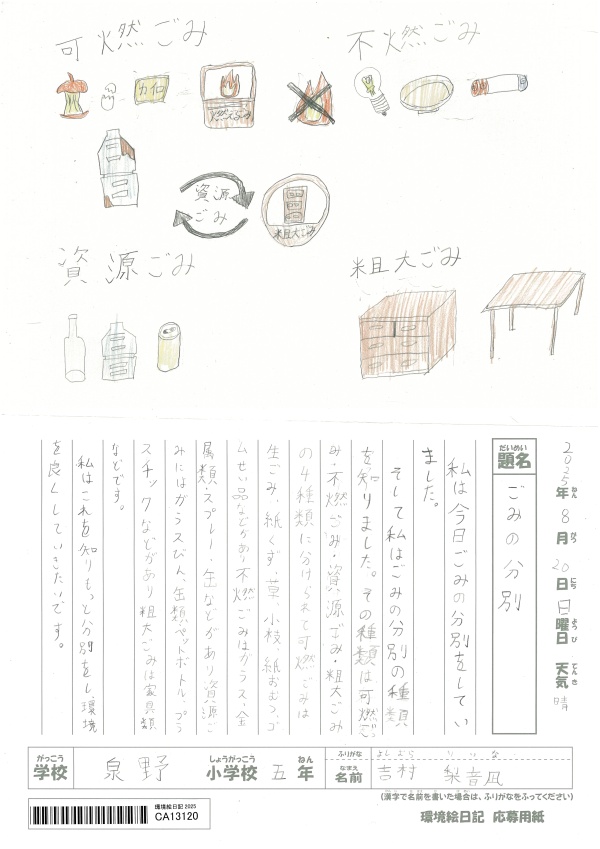 可燃ごみ
不燃ごみ
カイロ
燃えるごみ
資源
ごみ
粗大ごみ
資源ごみ
粗大ごみ
2025年8月20日日曜日 天気 晴
ねん がつ にち ようび てんき
だいめい
題名
ごみの分別
私は今日ごみの分別をしてい
ました。
そして私はごみの分別の種類
を知りました。その種類は可燃ご
み・不燃ごみ・資源ごみ・粗大ごみ
の4種類に分けられて可燃ごみは
生ごみ、紙くず、草、小枝、紙おむつ、ゴ
ムせい品などがあり不燃ごみはガラス、金
属類・スプレー・缶などがあり資源ご
みにはガラスびん、缶類、ペットボトル、プラ
スチックなどがあり粗大ごみは家具類
などです。
私はこれを知りもっと分別をし、環境
を良くしていきたいです。
がっこう しょうがっこう ねん
学校 泉野 小学校 五年
ふりがな よしむら りいな
なまえ
名前 吉村 梨音凪
(漢字で名前を書いた場合は、ふりがなをふってください)
環境絵日記 2025
CA13120
環境絵日記 応募用紙